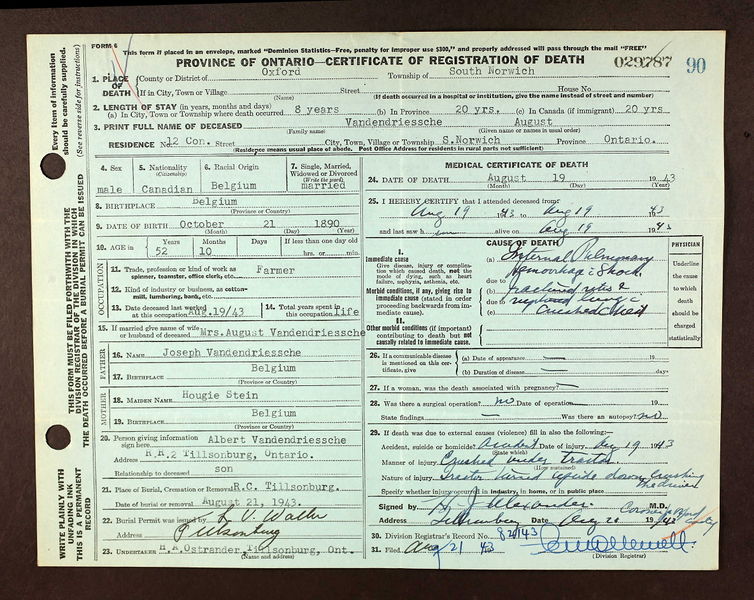 FORM 6
This form if placed in an envelope, marked "Dominion Statistics—Free, penalty for improper use $300," and properly addressed will pass through the mail "FREE"
PROVINCE OF ONTARIO—CERTIFICATE OF REGISTRATION OF DEATH
029787 90
1. PLACE OF DEATH (County or District of Oxford Township of South Norwich
If in City, Town or Village (Name) Street House No.
(If death occurred in a hospital or institution, give the name instead of street and number)
2. LENGTH OF STAY (in years, months and days)
(a) In City, Town or Township where death occurred 8 years (b) In Province 20 yrs. (c) In Canada (if immigrant) 20 yrs
3. PRINT FULL NAME OF DECEASED Vandendriessche August
(Family name) (Given name or names in usual order)
RESIDENCE No. 12 Con. Street City, Town, Village or Township S.Norwich Province Ontario.
(Residence means usual place of abode. Post Office Address for residents in rural parts not sufficient)
4. Sex male
5. Nationality (Citizenship) Canadian
6. Racial Origin Belgium
7. Single, Married, Widowed or Divorced (Write the word) married
8. BIRTHPLACE Belgium
(Province or Country)
9. DATE OF BIRTH October 21 1890
(Month) (Day) (Year)
10. AGE in Years 52 Months 10 Days If less than one day old hrs. or min.
OCCUPATION
11. Trade, profession or kind of work as spinner, teamster, office clerk, etc. Farmer
12. Kind of industry or business, as cotton-mill, lumbering, bank, etc.
13. Date deceased last worked at this occupation Aug.19/43
14. Total years spent in this occupation life
15. If married give name of wife or husband of deceased Mrs.August Vandendriessche
FATHER
16. NAME Joseph Vandendriessche
17. BIRTHPLACE Belgium
(Province or Country)
MOTHER
18. MAIDEN NAME Hougie Stein
19. BIRTHPLACE Belgium
(Province or Country)
20. Person giving information sign here Albert Vandendriessche
Address R.R.2 Tillsonburg, Ontario.
Relationship to deceased son
21. Place of Burial, Cremation or Removal R.C. Tillsonburg.
Date of burial or removal August 21, 1943.
22. Burial Permit was issued by
Address
23. UNDERTAKER H A Ostrander, Tillsonburg, Ont.
(Name and address)
MEDICAL CERTIFICATE OF DEATH
24. DATE OF DEATH August 19 1943
(Month) (Day) (Year)
25. I HEREBY CERTIFY that I attended deceased from:
Aug 19 1943 to Aug 19 1943
and last saw h im alive on Aug 19 1943
CAUSE OF DEATH
I.
Immediate cause
Give disease, injury or complication which caused death, not the mode of dying, such as heart failure, asphyxia, asthenia, etc.
Morbid conditions, if any, giving rise to immediate cause (stated in order proceeding backwards from immediate cause).
II.
Other morbid conditions (if important) contributing to death but not causally related to immediate cause.
(a) Internal Pulmonary
Hemorrhage & Shock
due to
(b) fractured ribs &
due to ruptured lung
(c) Crushed chest
PHYSICIAN
Underline the cause to which death should be charged statistically
26. If a communicable disease is mentioned on this certificate, give (a) Date of appearance 19
(b) Duration of disease days
27. If a woman, was the death associated with pregnancy?
28. Was there a surgical operation? no Date of operation 19
State findings Was there an autopsy? no
29. If death was due to external causes (violence) fill in also the following:—
Accident, suicide or homicide? Accident Date of injury Aug 19 1943
(State which)
Manner of injury Crushed under tractor
(How sustained)
Nature of injury Tractor turned upside down crushing
Specify whether injury occurred in industry, in home, or in public place
Signed by M.D.
Address Date Aug 20 1943
30. Division Registrar's Record No.
31. Filed Aug 21 43
(Division Registrar)
Every item of information should be carefully supplied.
(See reverse side for instructions)
THIS FORM MUST BE FILED FORTHWITH WITH THE DIVISION REGISTRAR OF THE DIVISION IN WHICH THE DEATH OCCURRED BEFORE A BURIAL PERMIT CAN BE ISSUED
WRITE PLAINLY WITH UNFADING INK
THIS IS A PERMANENT RECORD